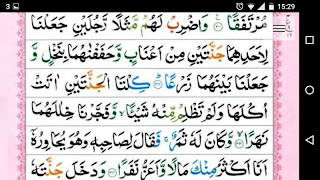 3
15:29
مُرْتَفَقًا ۝ وَاضْرِبْ لَهُمْ مَّثَلًا رَّجُلَيْنِ جَعَلْنَا
لِاَحَدِهِمَا جَنَّتَيْنِ مِنْ اَعْنَابٍ وَّحَفَفْنٰهُمَا بِنَخْلٍ وَّ
جَعَلْنَا بَيْنَهُمَا زَرْعًا ۝ كِلْتَا الْجَنَّتَيْنِ اٰتَتْ
اُكُلَهَا وَلَمْ تَظْلِمْ مِّنْهُ شَيْـًٔا ۙ وَّفَجَّرْنَا خِلٰلَهُمَا
نَهَرًا ۝ وَّكَانَ لَهٗ ثَمَرٌ ۚ فَقَالَ لِصَاحِبِهٖ وَهُوَ يُحَاوِرُهٗٓ
اَنَا اَكْثَرُ مِنْكَ مَالًا وَّاَعَزُّ نَفَرًا ۝ وَدَخَلَ جَنَّتَهٗ